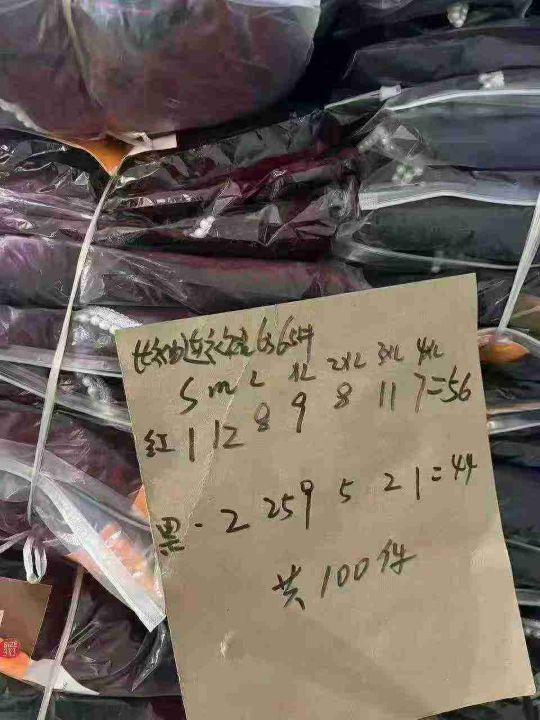 长袖连衣裙 6365#
S m L XL 2XL 3XL 4XL
红 1 12 8 9 8 11 7=56
黑 - 2 25 9 5 2 1=44
共100件
SIZE